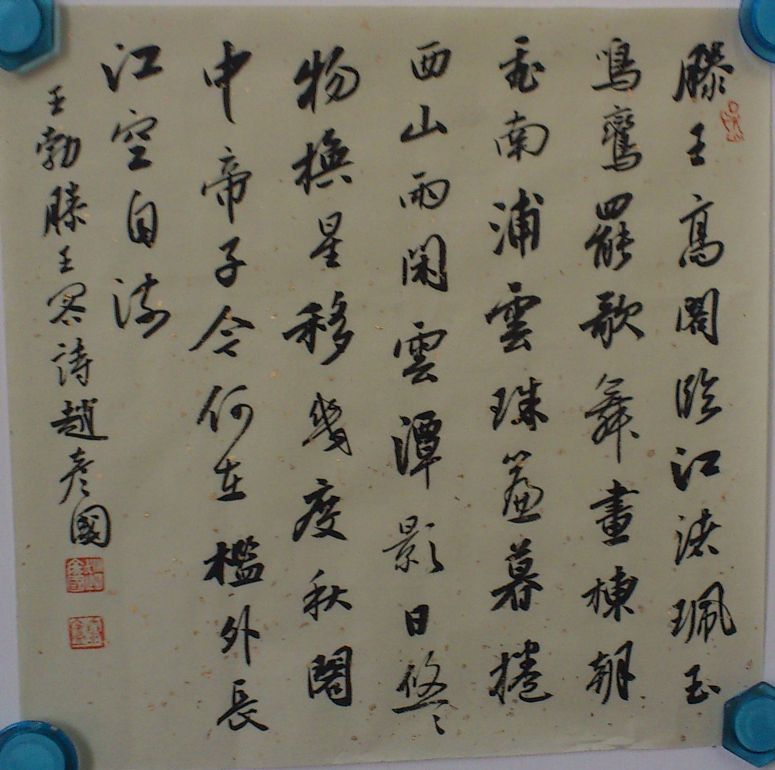 滕王高閣临江渚珮玉
鳴鸞罷歌舞畫棟朝
飛南浦雲珠簾暮捲
西山雨閑雲潭影日悠〻
物換星移幾度秋閣
中帝子今何在檻外長
江空自流
王勃滕王閣詩趙彦國